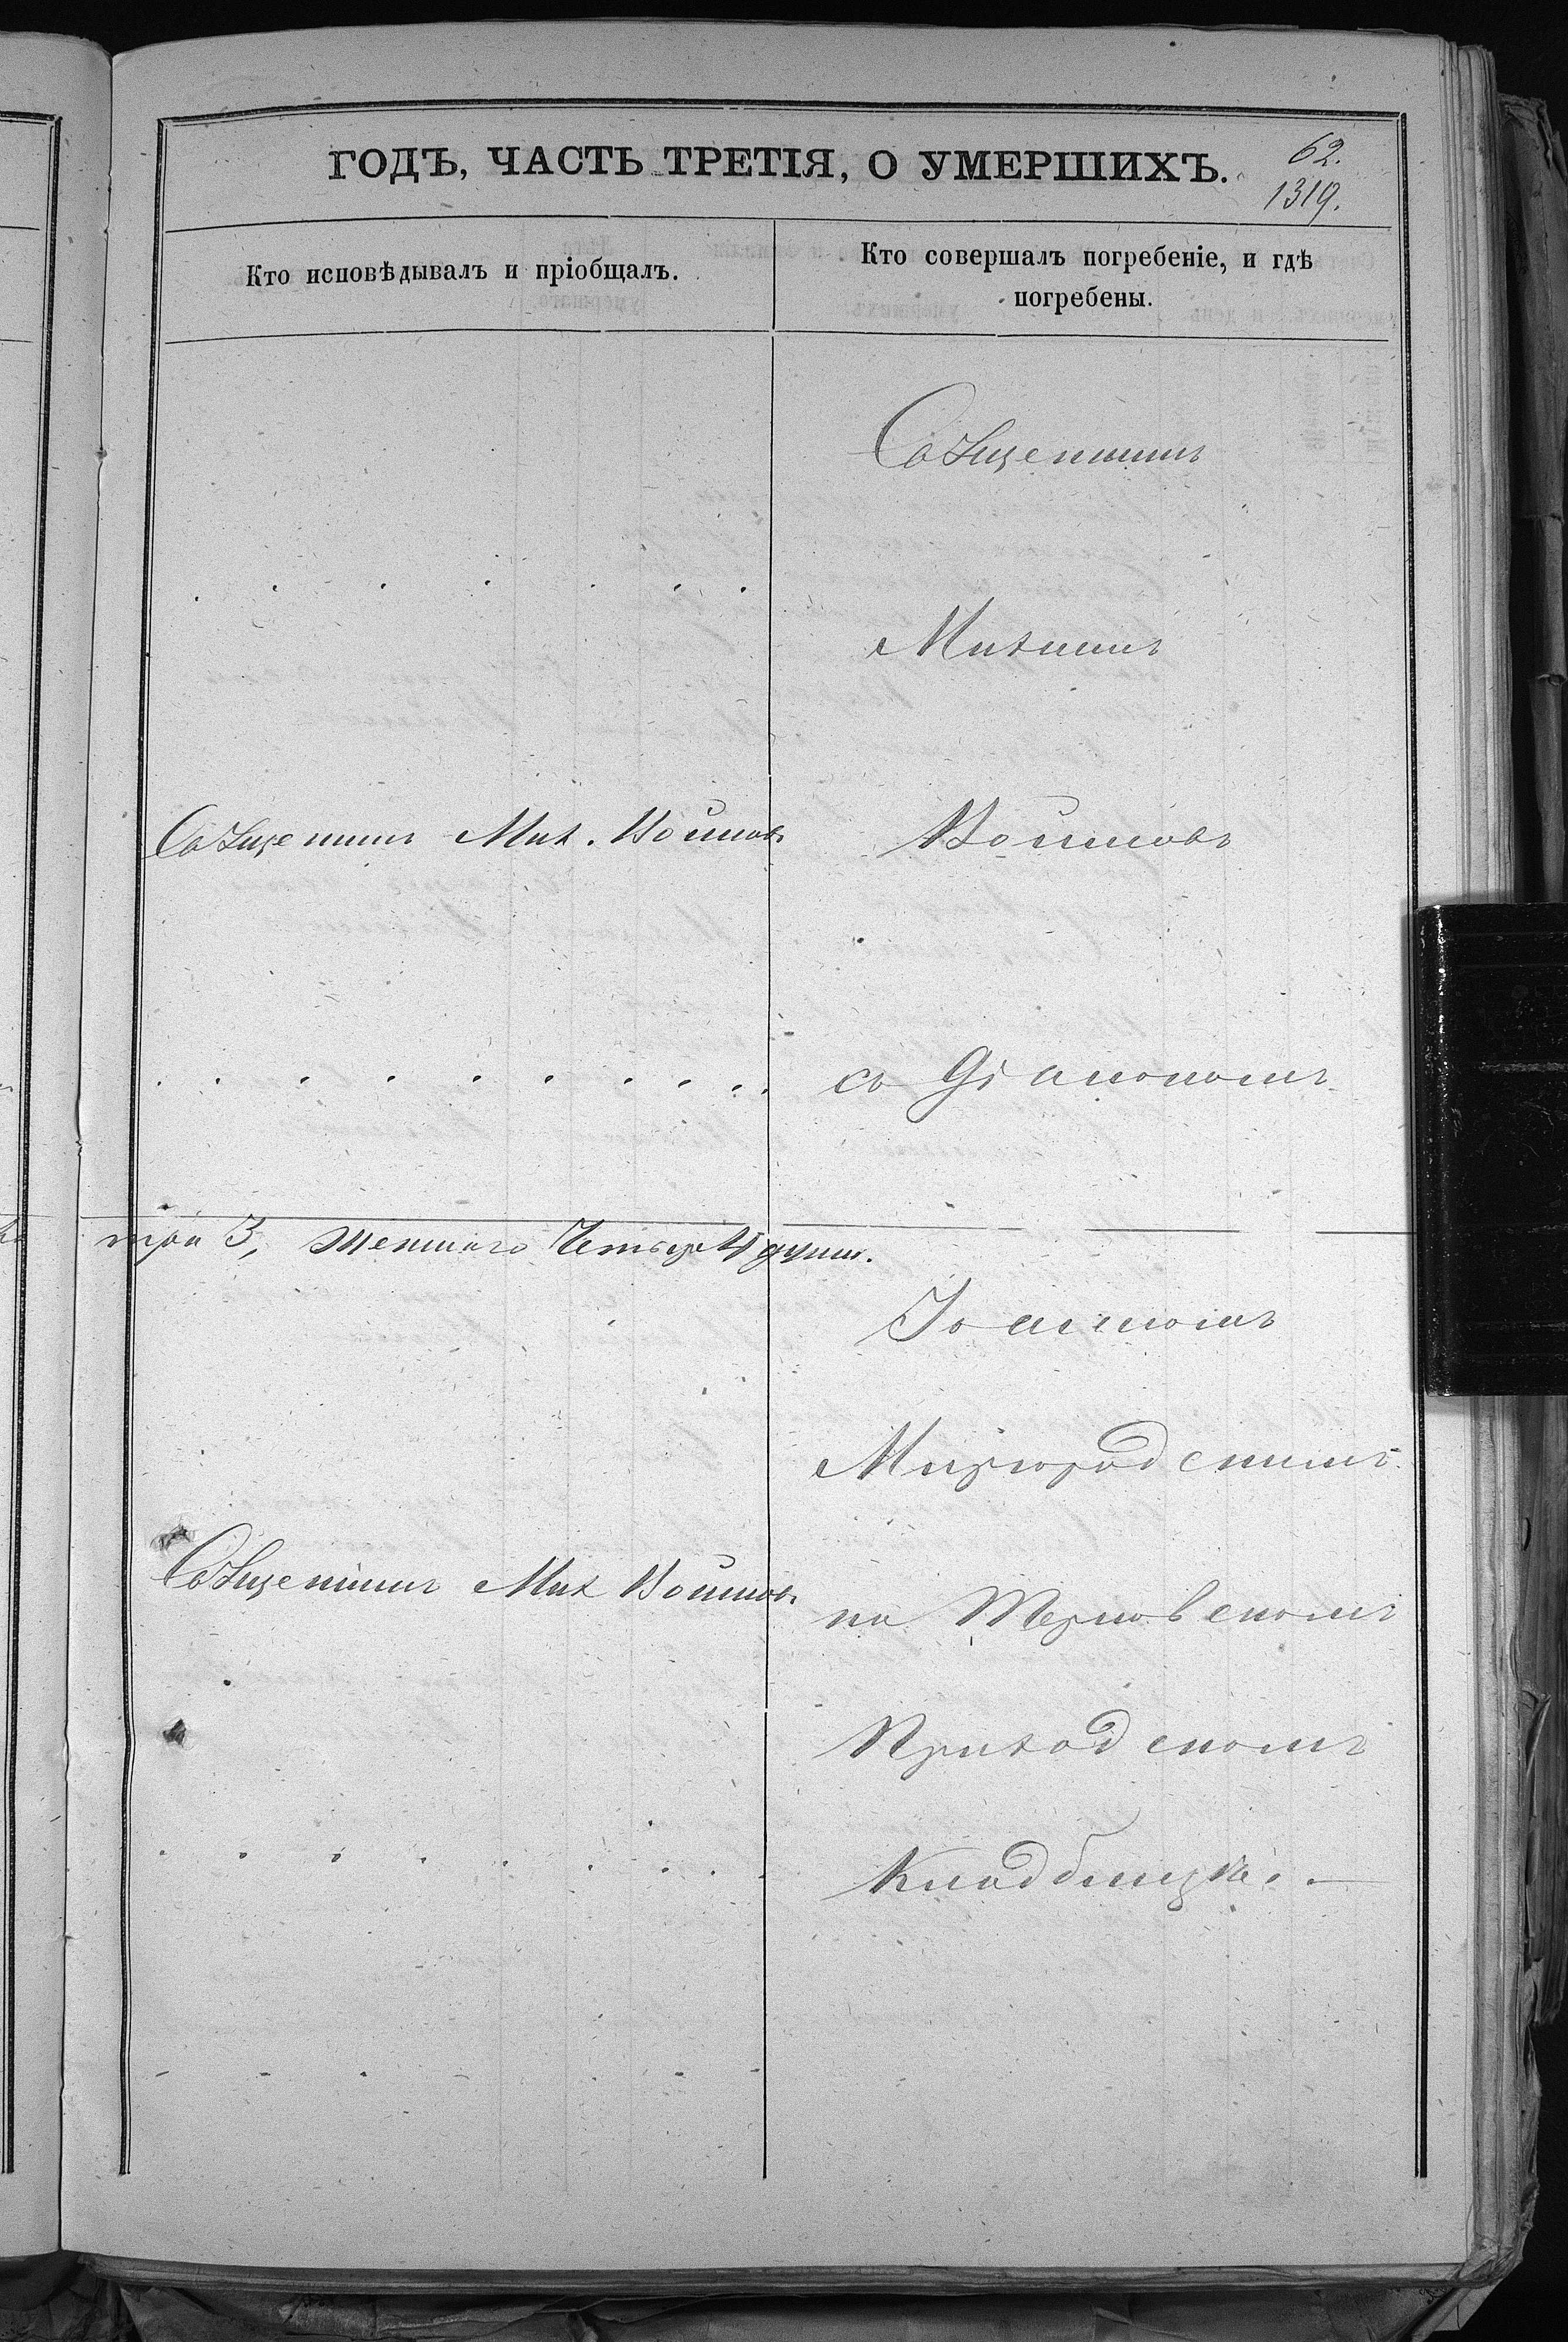 ГОДЪ, ЧАСТЬ ТРЕТІЯ, О УМЕРШИХЪ.
62.
1319.
Кто исповѣдывалъ и пріобщалъ.
Кто совершалъ погребеніе, и гдѣ
погребены.
Священникъ
Михаилъ
Священникъ Мих. Войновъ
Войновъ
съ Діакономъ
три 3, женскаго Четыре 4 души.
Іоанномъ
Миргородскимъ
Священникъ Мих Войновъ
на Терновскомъ
Приходскомъ
Кладбищѣ. —